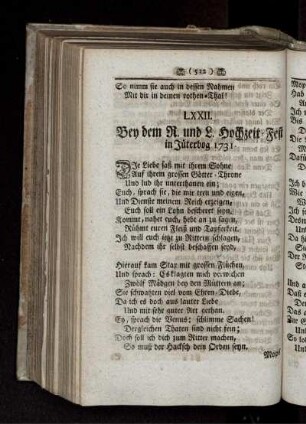 ( 522 )
So nimm sie auch in dessen Nahmen
Mit dir in deinen rothen Thal!
LXXII.
Bey dem R. und L. Hochzeit-Fest
in Jüterbog 1731.
Die Liebe saß mit ihrem Sohne
Auf ihrem grossen Götter-Throne
Und lud ihr unterthanen ein;
Euch, sprach sie, die mir treu und eigen,
Und Dienste meinem Reich erzeigen,
Euch soll ein Lohn bescheret seyn,
Kommt, nahet euch, hebt an zu sagen,
Rühmt euren Fleiß und Tapferkeit,
Ich will euch itzt zu Rittern schlagen,
Nachdem ihr selbst beschaffen seyd.
Hierauf kam Stax mit grossen Flüchen,
Und sprach: Es klagten mich
Zwölf Mädgen bey den Müttern an;
Sie schwatzten viel vom Ehren-Diebe,
Da ich es doch aus lauter Liebe
Und mit sehr guter Art gethan.
Ey, sprach die Venus; schlimme Sachen!
Dergleichen Thaten sind nicht fein;
Doch soll ich dich zum Ritter machen,
So muß der Hacksch dein Orden seyn.